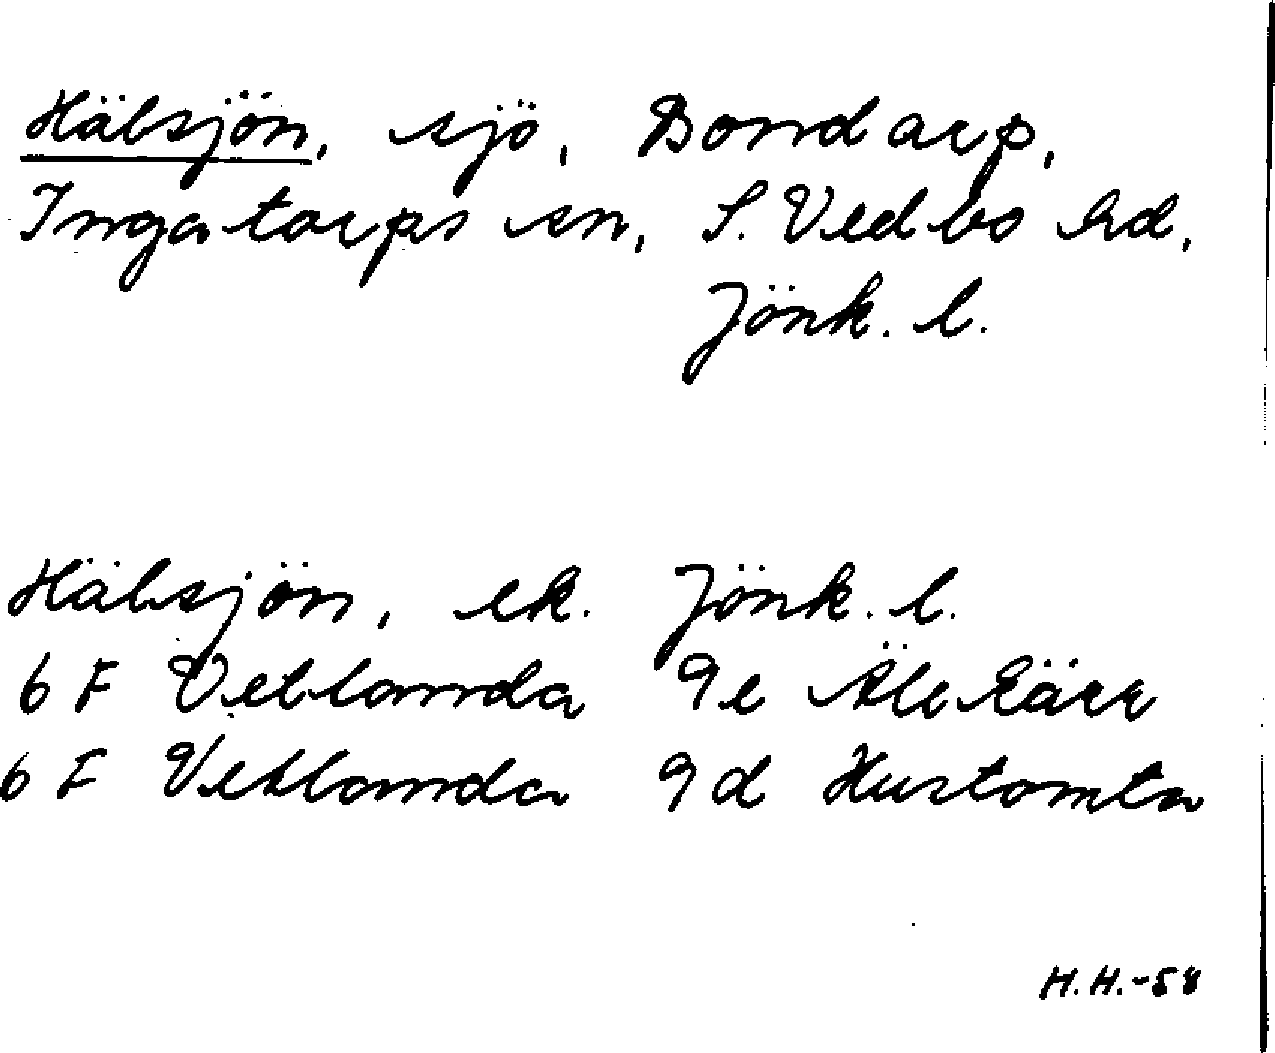 Hälsjön, sjö, Bondarp,
Ingatorps sn, S. Vedbo hd,
Jönk. l.
Hälsjön, ek. Jönk. l.
6 F Vetlanda 9e Älekärr
6 F Vetlanda 9d Hustomta
H.H.-58